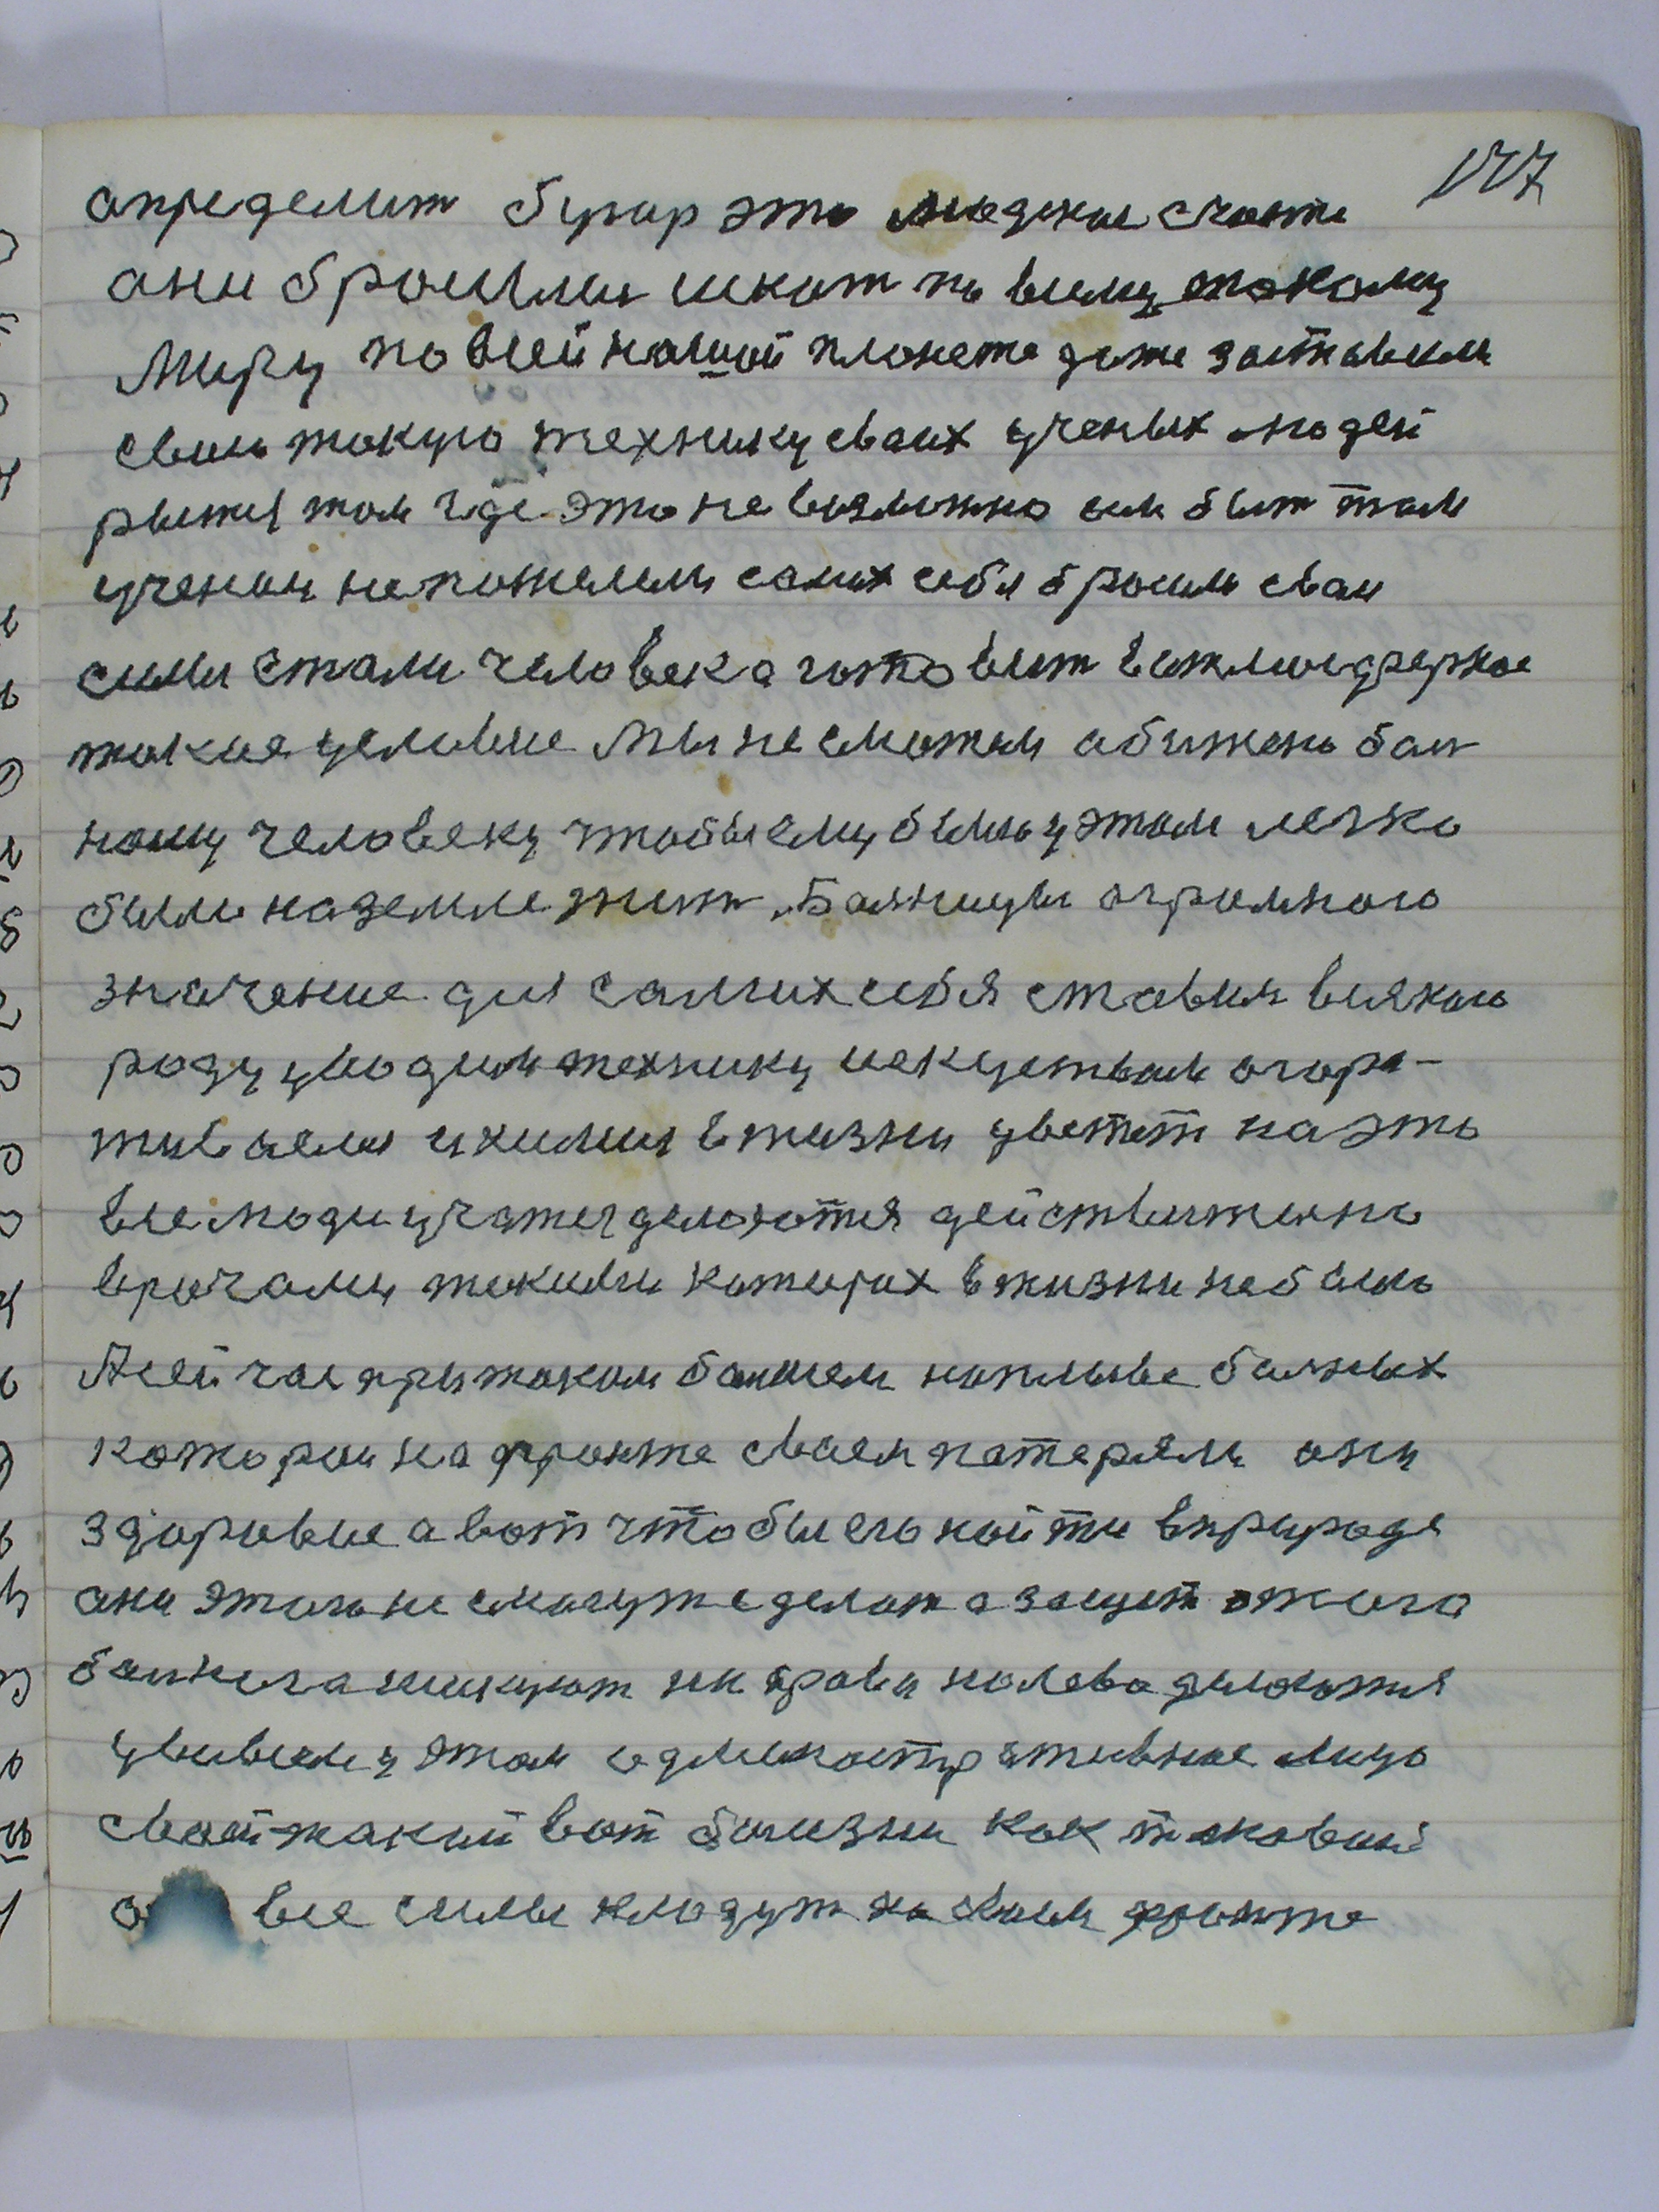 177
определит бугар это людское счастя
ани бросили искат по всему такому
Миру по всей нашой планете даже заставили
свою такую технику сваих ученых людей
рытся там где это не вазможно или быт там
ученои не пожелели самих себя бросили сваи
силы стали человека готовит в
такие условие Мы не сможем абижено бол
ному человеку чтобы ему было у этом легко
были на земле жит. Болницы огромного
значение для самих себя ставим всякого
роду уводим технику искуством
и химия в жизни цветет на это
все люди учатся делаются действително
врачами такими каторих в жизни не было
А сейчас при таком болшом наплыве болных
каторои на фронте сваем потеряли они
здоровие а вот чтобы его найти в природе
они этого не смогут сделат а за счет этого
болного живут на право налево делаются
у этом административное лицо
свой такий вот болизни как таковый
все силы кладут на своем фронте